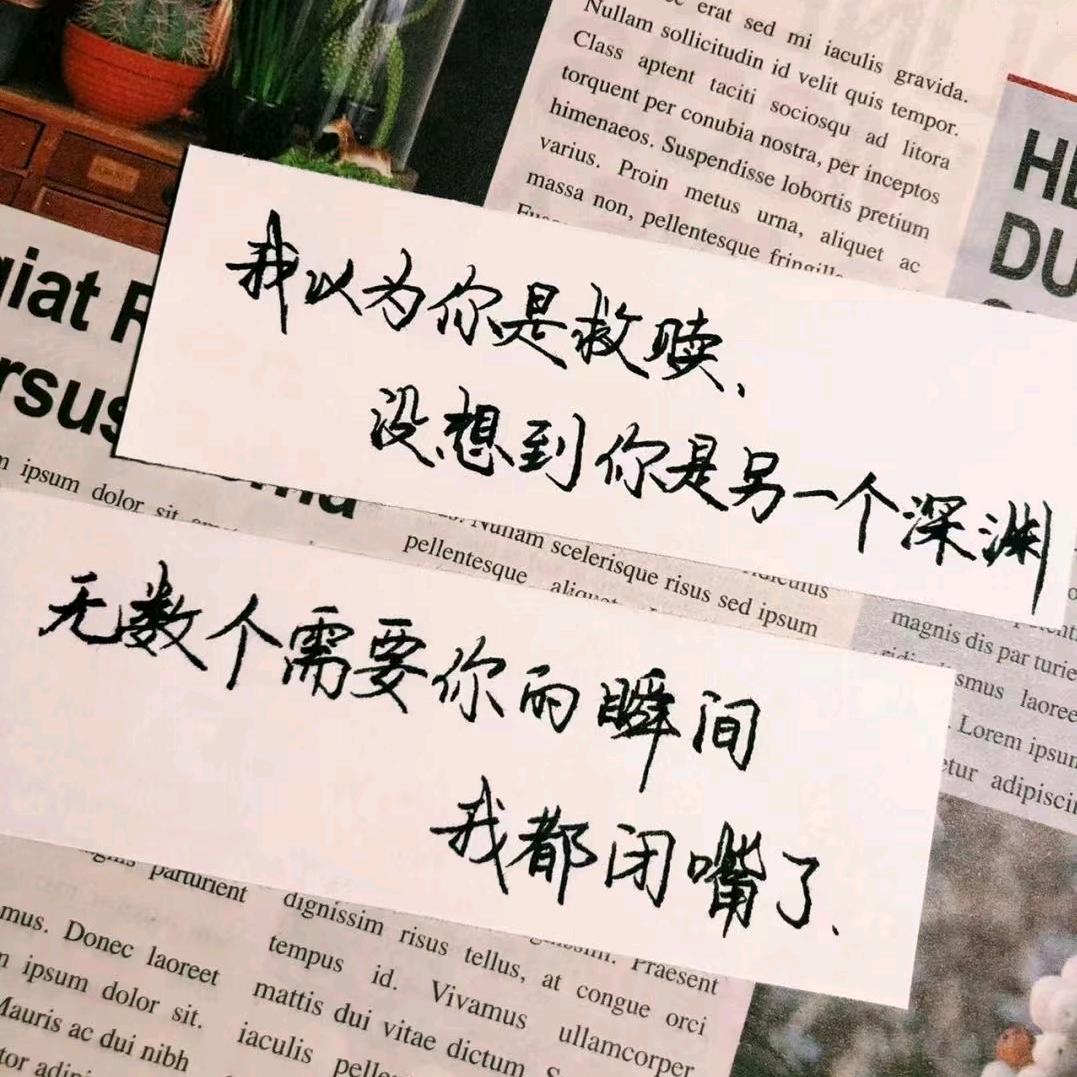 erat sed mi iaculis gravida.
Nullam sollicitudin id velit quis tempor.
Class aptent taciti sociosqu ad litora
torquent per conubia nostra, per inceptos
himenaeos. Suspendisse lobortis pretium
varius. Proin metus urna, aliquet ac
massa non, pellentesque fringilla
DU
giat
rsus
m ipsum dolor sit amet
我以为你是救赎、
没想到你是另一个深渊
Nullam scelerisque risus sed ipsum
pellentesque aliquet
ridiculus
magnis dis par turie
smus laoree
. Lorem ipsum
etur adipiscin
无数个需要你的瞬间
我都闭嘴了.
magnis parturient
mus. Donec laoreet
m ipsum dolor sit.
Mauris ac dui nibh
tor adipi
dignissim risus tellus, at congue orci
tempus id. Vivamus ullamcorper
mattis dui vitae dictum s
iaculis pelle
Praesent